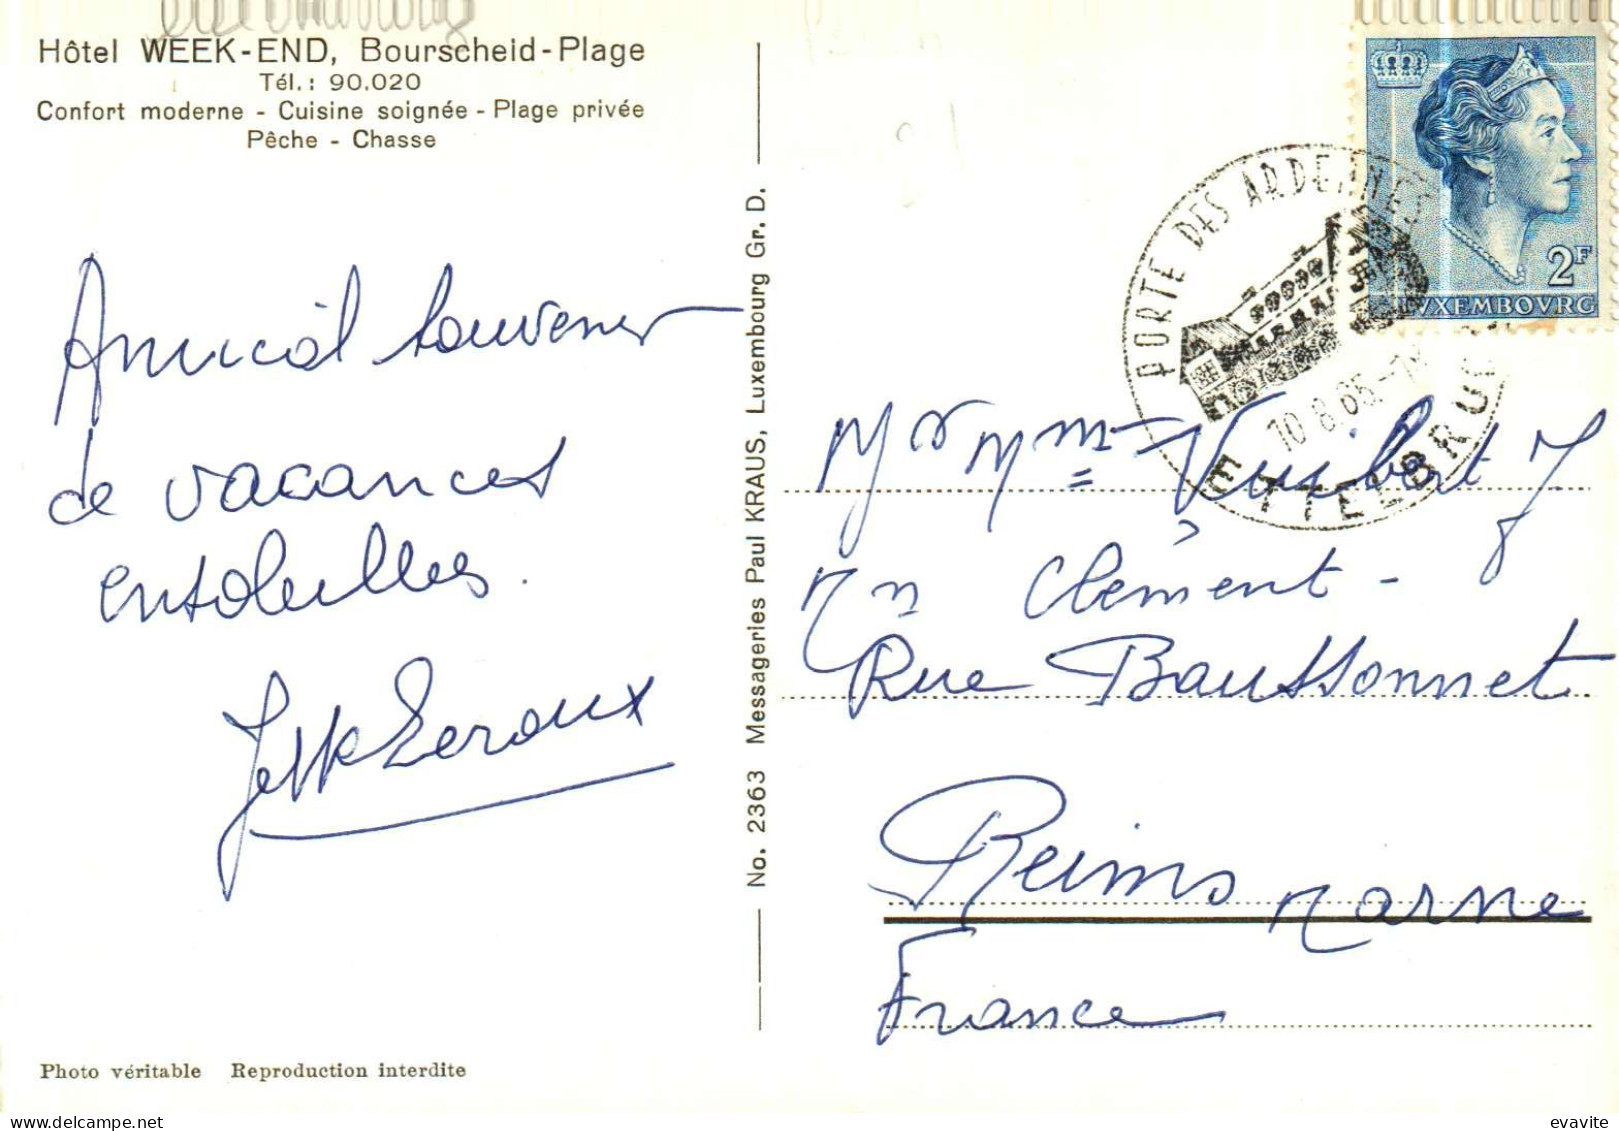 Hôtel WEEK-END, Bourscheid-Plage
Tél.: 90.020
Confort moderne - Cuisine soignée - Plage privée
Pêche - Chasse
Amical souvenir
de vacances
ensoleillées.
Leroux
Photo véritable Reproduction interdite
No. 2363 Messageries Paul KRAUS, Luxembourg Gr. D.
2F
LUXEMBOURG
PORTE DES ARDENNES
10.8.65
ETTELBRUCK
Mr Mme Vuibert J
Clément -
Rue Baussonnet
Reims Marne
France
evavite